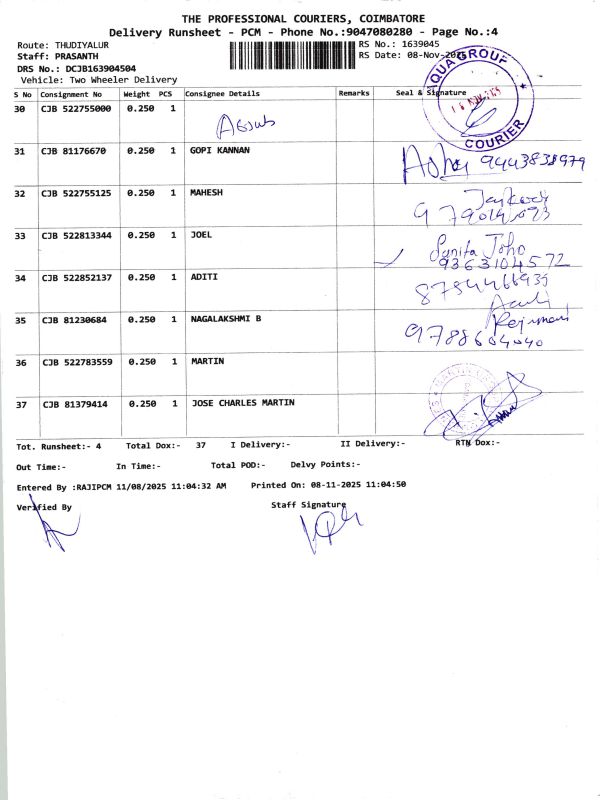 THE PROFESSIONAL COURIERS, COIMBATORE
Delivery Runsheet - PCM - Phone No.:9047080280 - Page No.:4
Route: THUDIYALUR RS No.: 1639045
Staff: PRASANTH RS Date: 08-Nov-2025
DRS No.: DCJB163904504
Vehicle: Two Wheeler Delivery
S No Consignment No Weight PCS Consignee Details Remarks Seal & Signature
30 CJB 522755000 0.250 1
AQUA GROUP
COURIER
31 CJB 81176670 0.250 1 GOPI KANNAN
32 CJB 522755125 0.250 1 MAHESH
33 CJB 522813344 0.250 1 JOEL
Sunita John
9363104572
34 CJB 522852137 0.250 1 ADITI
35 CJB 81230684 0.250 1 NAGALAKSHMI B
9788604040
36 CJB 522783559 0.250 1 MARTIN
37 CJB 81379414 0.250 1 JOSE CHARLES MARTIN
Tot. Runsheet:- 4 Total Dox:- 37 I Delivery:- II Delivery:- RTN Dox:-
Out Time:- In Time:- Total POD:- Delvy Points:-
Entered By :RAJIPCM 11/08/2025 11:04:32 AM Printed On: 08-11-2025 11:04:50
Verified By Staff Signature